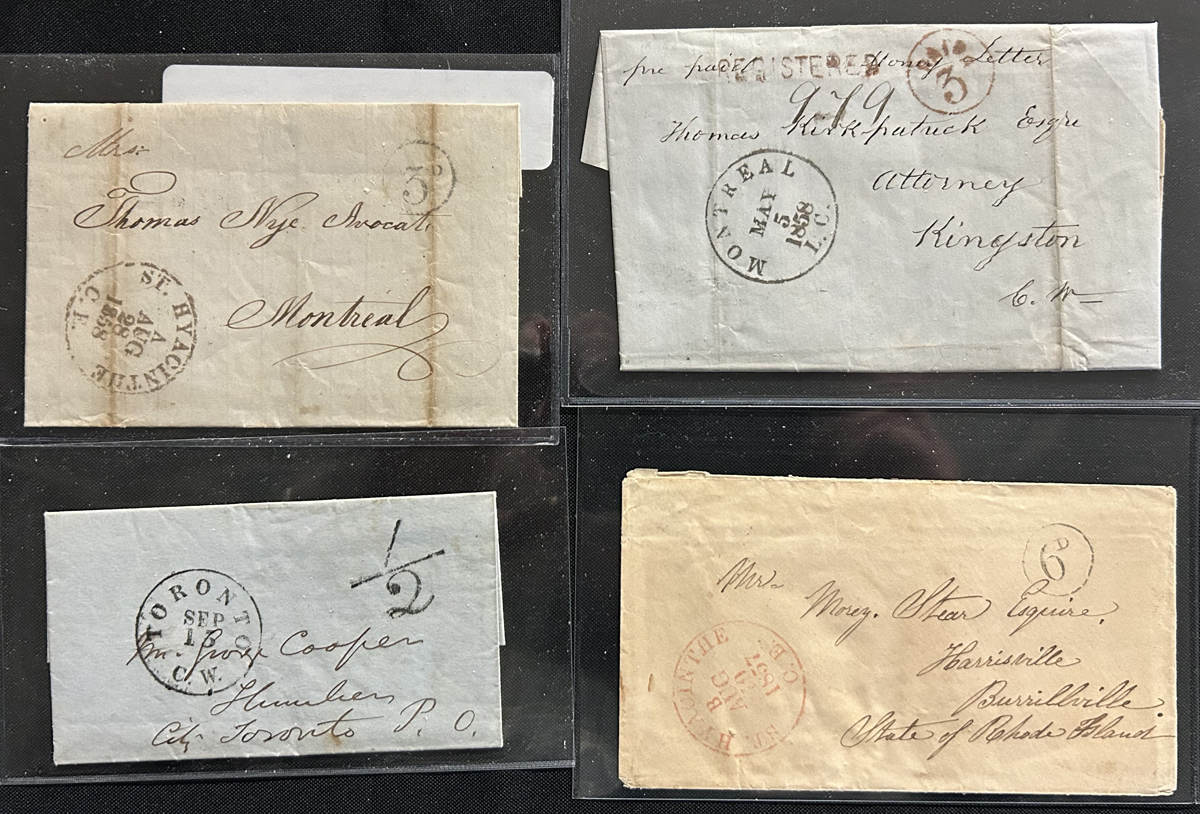 Mrs:
Thomas Nye Avocat
Montreal
5D
ST. HYACINTHE
C.E.
A
AUG
28
1858
pre paid Money Letter
REGISTERED
PAID
3
979
Thomas Kirkpatrick Esqre
Attorney
Kingston
C. W
MONTREAL
MAY
5
1858
L.C.
1/2
TORONTO
SEP
C. W.
Mr. George Cooper
Humber
City Toronto P. O.
6D
Mr.
Morey. Stear Esquire.
Harrisville
Burrillville
State of Rhode Island
ST. HYACINTHE
C.E.
B
AUG
1857